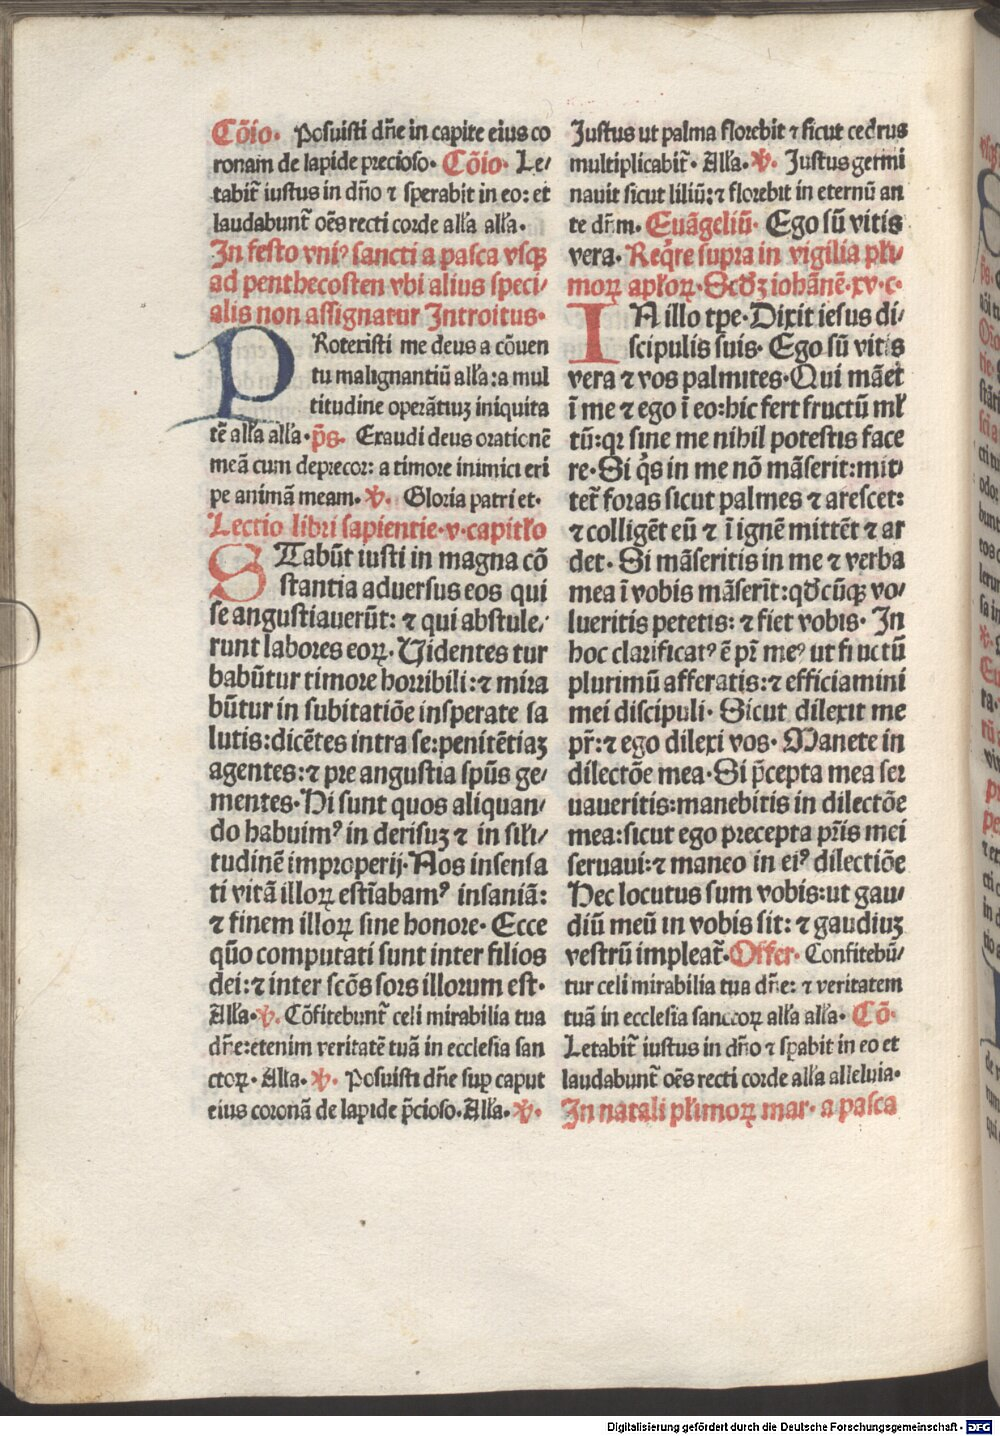 Cōio. Posuisti dn̄e in capite eius co
ronam de lapide precioso. Cōio. Le-
tabit̄ iustus in dn̄o ⁊ sperabit in eo: et
laudabunt̄ oēs recti corde all'a all'a.
In festo vniꝰ sancti a pasca vsqꝫ
ad penthecosten vbi alius speci-
alis non assignatur Introitus.
PRotexisti me deus a cōuen
tu malignantiū all'a: a mul
titudine operātiuꝫ iniquita
tē all'a all'a. p̄s. Exaudi deus orationē
meā cum deprecor: a timore inimici eri
pe animā meam. ꝟ. Gloria patri et.
Lectio libri sapientie. v. capitl'o
STabūt iusti in magna cō
stantia aduersus eos qui
se angustiauerūt: ⁊ qui abstule-
runt labores eoꝝ. Uidentes tur
babūtur timore horribili: ⁊ mira
būtur in subitatiōe insperate sa
lutis: dicētes intra se: penitētiaꝫ
agentes: ⁊ pre angustia sp̄us ge-
mentes. Hi sunt quos aliquan-
do habuimꝰ in derisuꝫ ⁊ in sil'i-
tudinē improperij. Nos insensa
ti vitā illoꝝ estīabamꝰ insaniā:
⁊ finem illoꝝ sine honore. Ecce
quō computati sunt inter filios
dei: ⁊ inter scōs sors illorum est.
All'a. ꝟ. Cōfitebunt̄ celi mirabilia tua
dn̄e: etenim veritatē tuā in ecclesia san
ctoꝝ. All'a. ꝟ. Posuisti dn̄e suꝑ caput
eius coronā de lapide p̄cioso. All'a. ꝟ.
Justus ut palma florebit ⁊ sicut cedrus
multiplicabit̄. All'a. ꝟ. Justus germi
nauit sicut liliū: ⁊ florebit in eternū an
te dn̄m. Euāgeliū. Ego sū vitis
vera. Req̇re supra in vigilia pl'i-
moꝝ apl'oꝝ. Scd'ꝫ iohānē. xv. c.
IN illo tp̄e. Dixit iesus di-
scipulis suis. Ego sū vitis
vera ⁊ vos palmites. Qui māet
ī me ⁊ ego ī eo: hic fert fructū ml'
tū: qꝛ sine me nihil potestis face
re. Si q̇s in me nō māserit: mit-
tet̄ foras sicut palmes ⁊ arescet:
⁊ colligēt eū ⁊ ī ignē mittēt ⁊ ar
det. Si māseritis in me ⁊ verba
mea ī vobis māserīt: qd'cūqꝫ vo-
lueritis petetis: ⁊ fiet vobis. In
hoc clarificatꝰ ē pr̄ meꝰ ut fructū
plurimū afferatis: ⁊ efficiamini
mei discipuli. Sicut dilexit me
pr̄: ⁊ ego dilexi vos. Manete in
dilectōe mea. Si p̄cepta mea ser
uaueritis: manebitis in dilectōe
mea: sicut ego precepta pr̄is mei
seruaui: ⁊ maneo in eiꝰ dilectiōe
Hec locutus sum vobis: ut gau-
diū meū in vobis sit: ⁊ gaudiuꝫ
vestrū impleat̄. Offer. Confitebū-
tur celi mirabilia tua dn̄e: ⁊ veritatem
tuā in ecclesia sanctoꝝ all'a all'a. Cō.
Letabit̄ iustus in dn̄o ⁊ sꝑabit in eo et
laudabunt̄ oēs recti corde all'a alleluia.
In natali pl'imoꝝ mar. a pasca
Digitalisierung gefördert durch die Deutsche Forschungsgemeinschaft - DFG